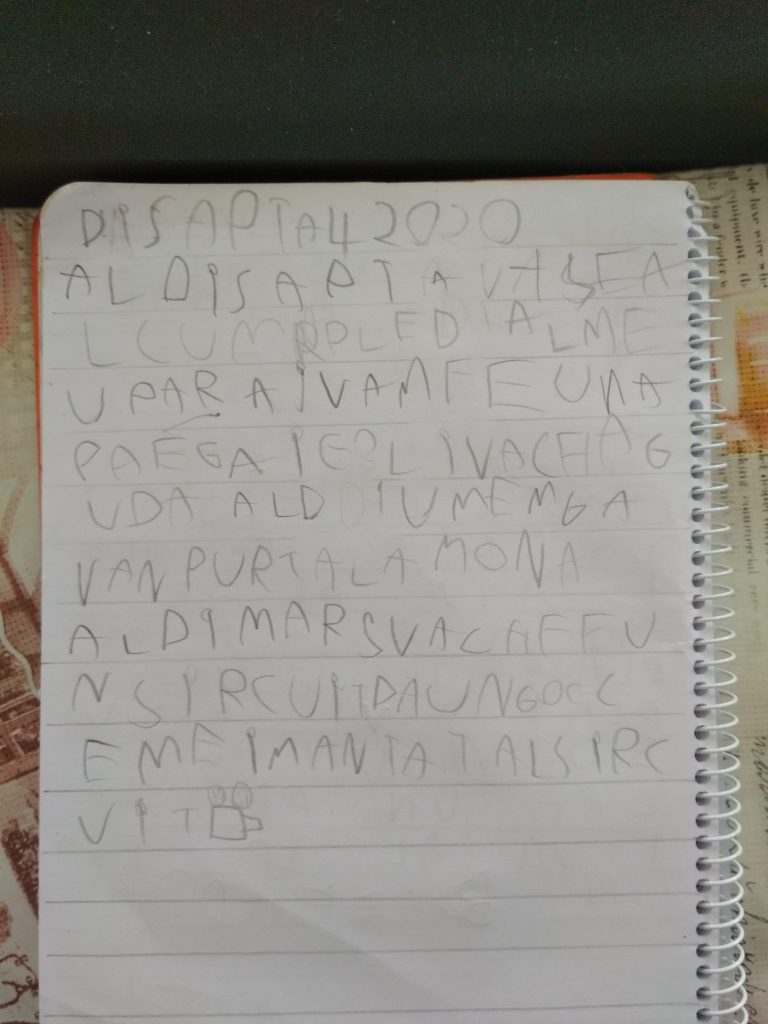 DISAPTA 4 2020
AL DISAPTA VA SEA
L CUMPLEDIALME
U PARA I VAM FE UNA
PAEGA I GPL IVACHAG
UDA AL DIUMENGA
VAN PURTA LA MONA
AL DIMARS VAC HE FE U
N SIRCUIT DA UN GOCC
EME I MANTAT AL SIRC
UIT